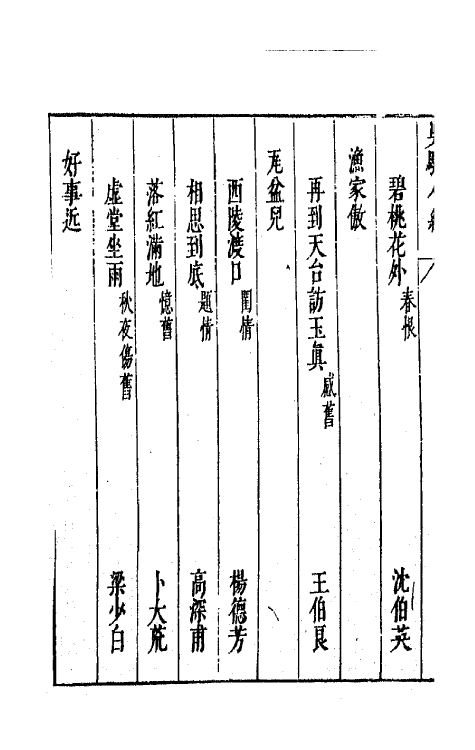 碧桃花外 春恨 沈伯英
漁家傲
再到天台訪玉眞 感舊 王伯良
瓦盆兒
西陵渡口 閨情 楊德芳
相思到底 題情 高深甫
落紅滿地 憶舊 卜大荒
虛堂坐雨 秋夜傷舊 梁少白
好事近